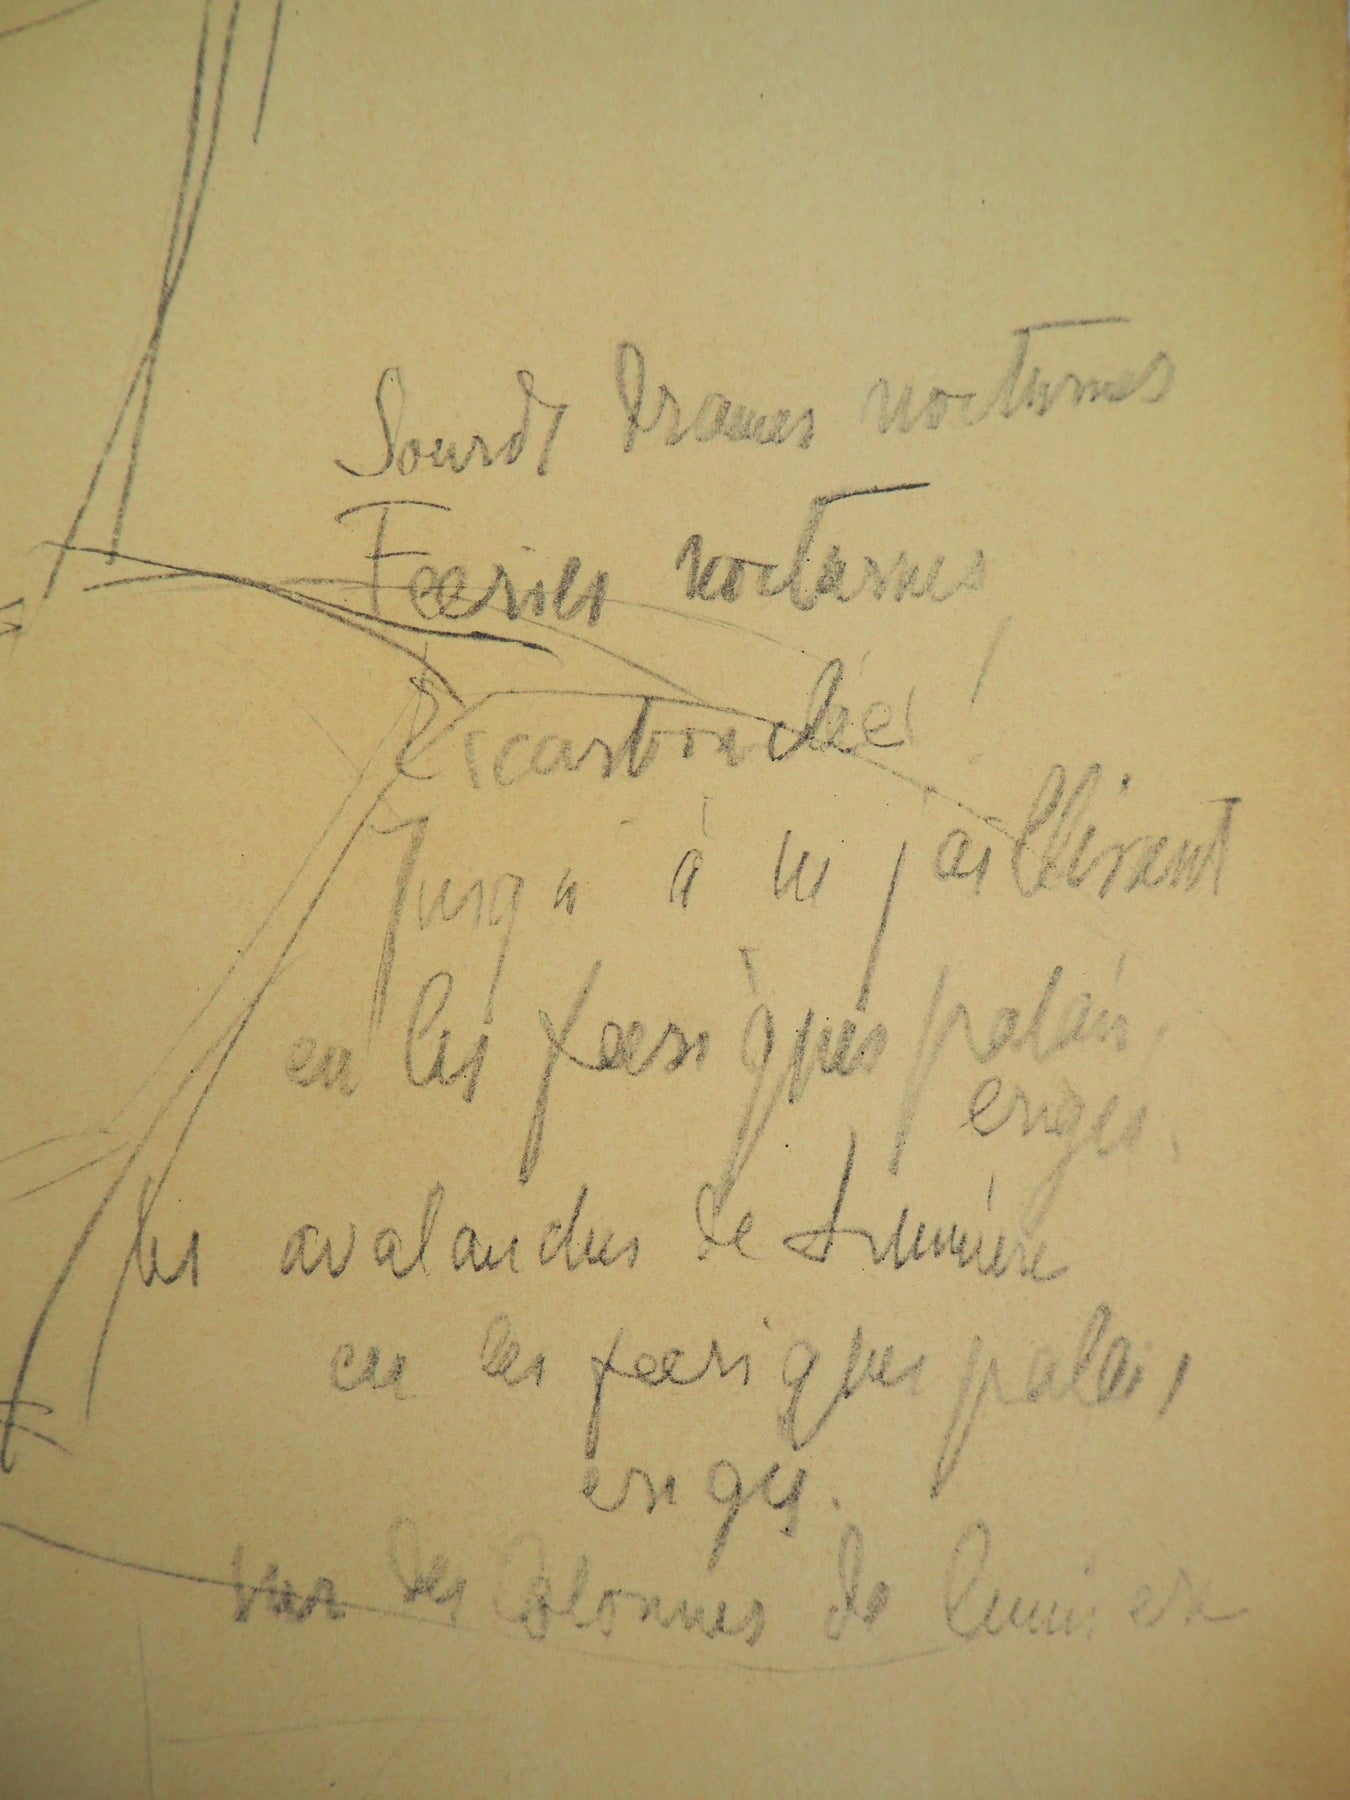 Sourds Drames nocturnes
Feeries nocturnes,
Escarbouclées !
Jusqu'à jaillissant
en les feeriques palais
eriges.
les avalanches de Lumière
en les feeriques palais
eriges.
sur des Colonnes de lumiere